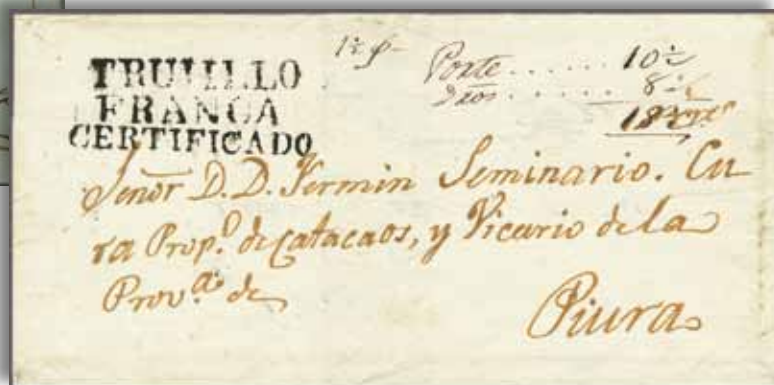 TRUJILLO
FRANCA
CERTIFICADO
Porte ...... 10½
Dros ...... 8
18
Señor D.D. Fermin Seminario. Cu
ra Prop.º de Catacaos, y Vicario de la
Prov.ª de
Piura